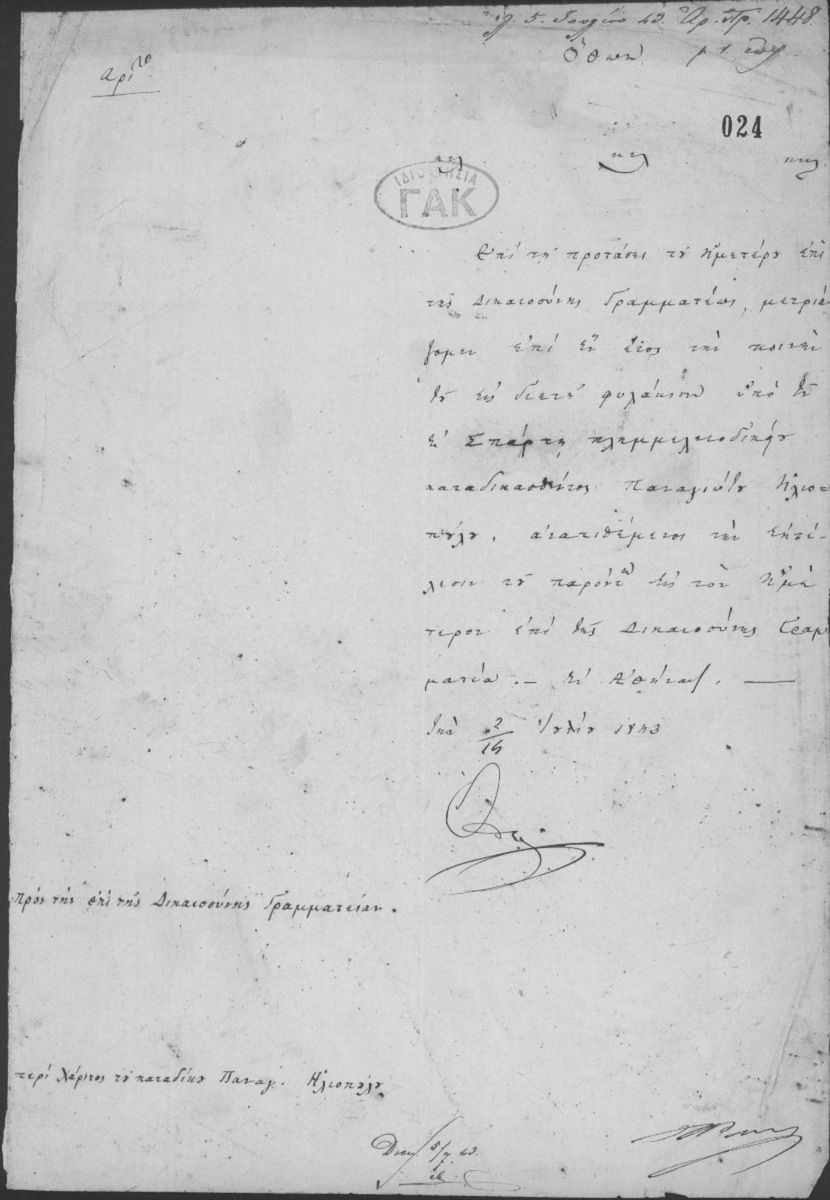 5 Ἰουλίου 43. Ἀρ. Πρ. 1448
Ὄθων
Αριτο
024
κτλ κτλ κτλ
ΙΔΙΟΚΤΗΣΙΑ
ΓΑΚ
Ἐπί τῇ προτάσει τοῦ Ἡμετέρου ἐπί
τῆς Δικαιοσύνης Γραμματέως, μετριά
ζομεν ἐπί ἓν ἔτος τὴν ποινὴν
τοῦ εἰς διετῆ φυλάκισιν ὑπό τοῦ
ἐν Σπάρτῃ πλημμελειοδικείου
καταδικασθέντος Παναγιώτου Ηλιο-
πούλου, ἀνατιθέμενοι τὴν ἐκτέ
λεσιν τοῦ παρόντος εἰς τὸν Ἡμέ
τερον ἐπί τῆς Δικαιοσύνης Γραμ
ματέα. — Ἐν Ἀθήναις. —
τὴν 2/14 Ἰουλίου 1843
Πρὸς τὴν ἐπὶ τῆς Δικαιοσύνης Γραμματείαν.
περί Χάριτος τοῦ καταδίκου Παναγ. Ηλιοπούλου
5/7 43